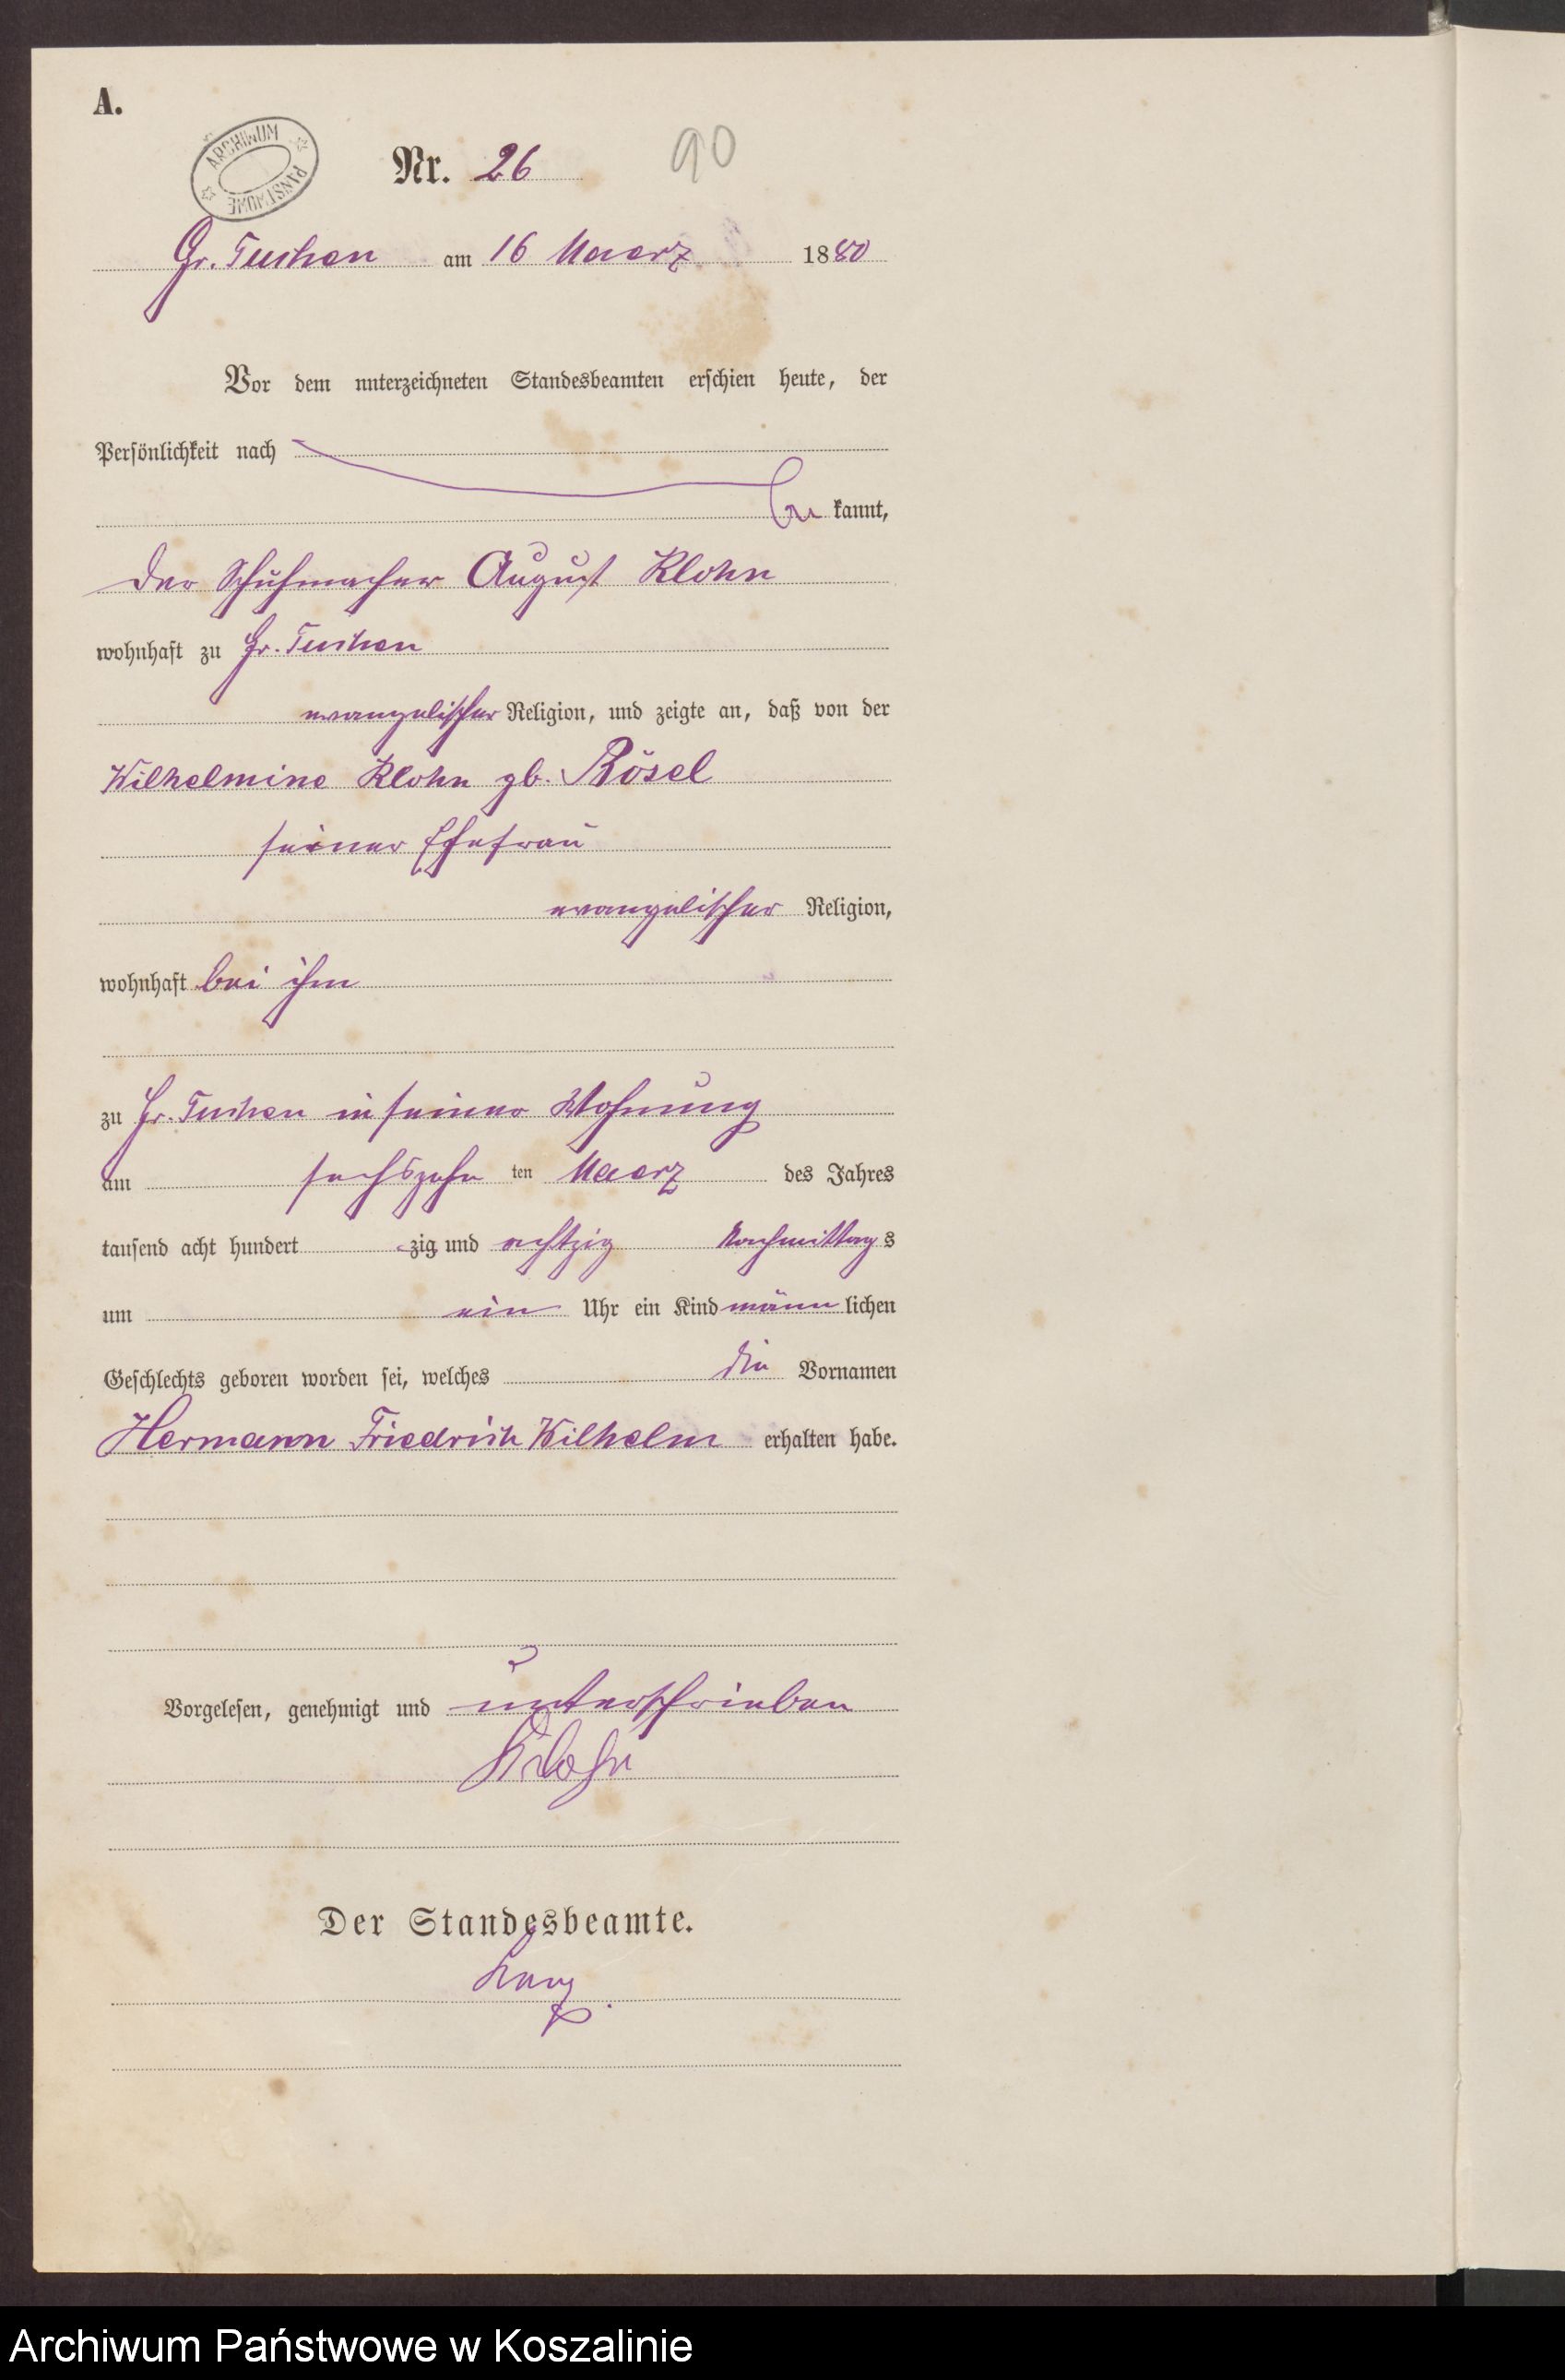 A.
ARCHIWUM PAŃSTWOWE
Nr. 26
90
Gr. Tuchen am 16 Maerz 1880
Vor dem unterzeichneten Standesbeamten erschien heute, der
Persönlichkeit nach
be kannt,
der Schuhmacher August Klohn
wohnhaft zu Gr. Tuchen
evangelischer Religion, und zeigte an, daß von der
Wilhelmine Klohn gb. Rösel
seiner Ehefrau
evangelischer Religion,
wohnhaft bei ihm
zu Gr. Tuchen in seiner Wohnung
am sechszehn ten Maerz des Jahres
tausend acht hundert zig und achtzig Nachmittag s
um ein Uhr ein Kind männ lichen
Geschlechts geboren worden sei, welches die Vornamen
Hermann Friedrich Wilhelm erhalten habe.
Vorgelesen, genehmigt und unterschrieben
Klohn
Der Standesbeamte.
Archiwum Państwowe w Koszalinie